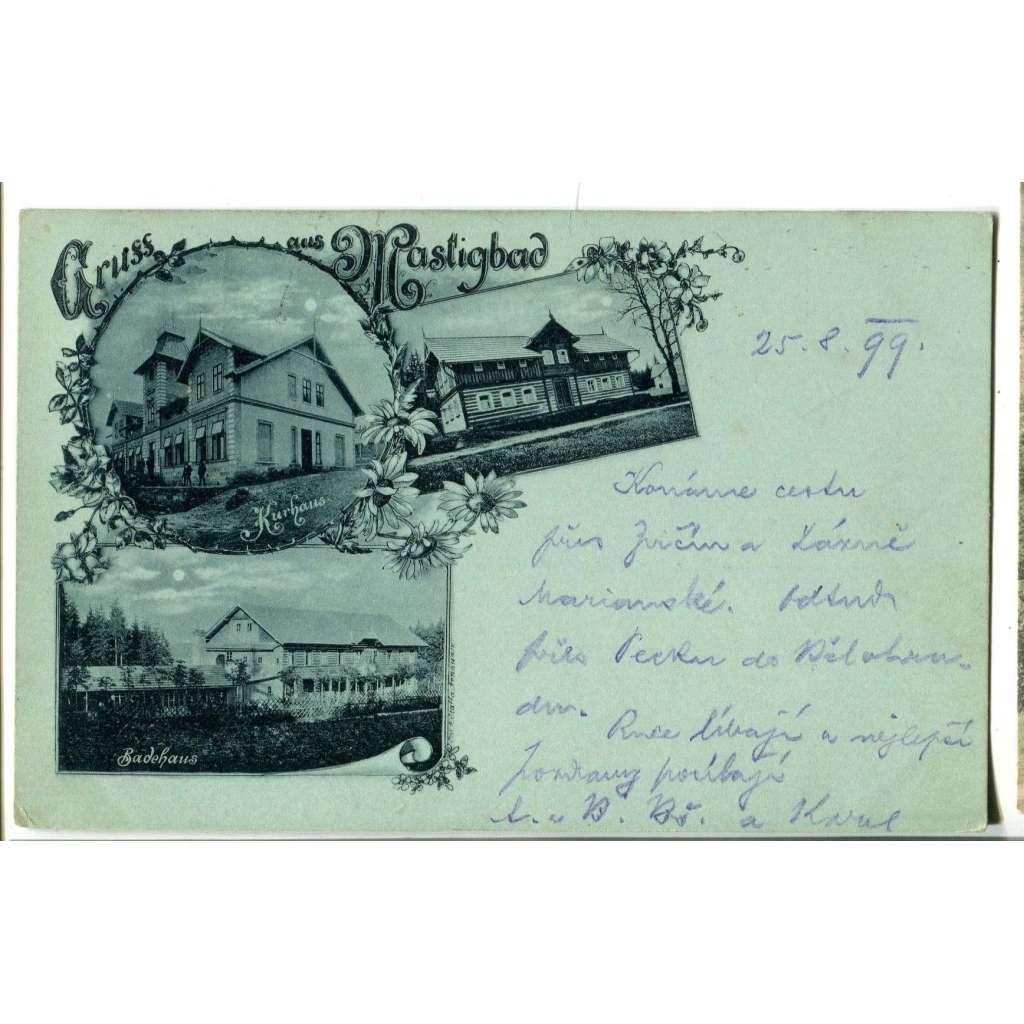 Gruss aus Mastigbad
Kurhaus
Badehaus
25. 8. 99.
Konáme cestu
přes Zvičin a Lázně
Marianské. Odtud
přes Pecku do Bělohra-
du.
Ruce líbají a nejlepší
pozdravy posílají
A. a B. Bš. a Karel